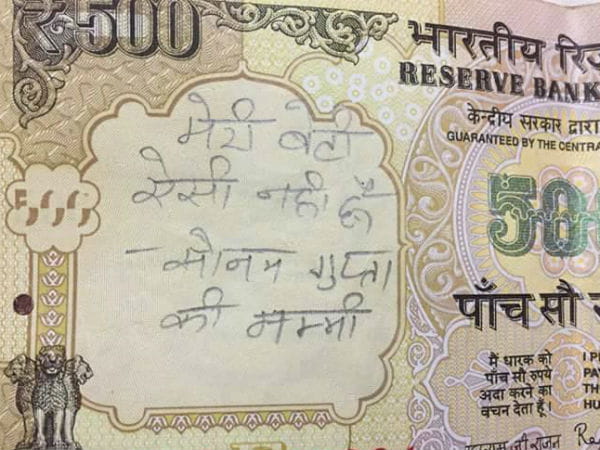 ₹500
भारतीय रिज़
RESERVE BANK
केन्द्रीय सरकार द्वारा
GUARANTEED BY THE CENTRA
मेरी बेटी
ऐसी नही हैं
- सोनम गुप्ता
की मम्मी
500
पाँच सौ
मैं धारक को
पाँच सौ रुपये
अदा करने का
वचन देता हूँ।
I P
PA
TH
HU